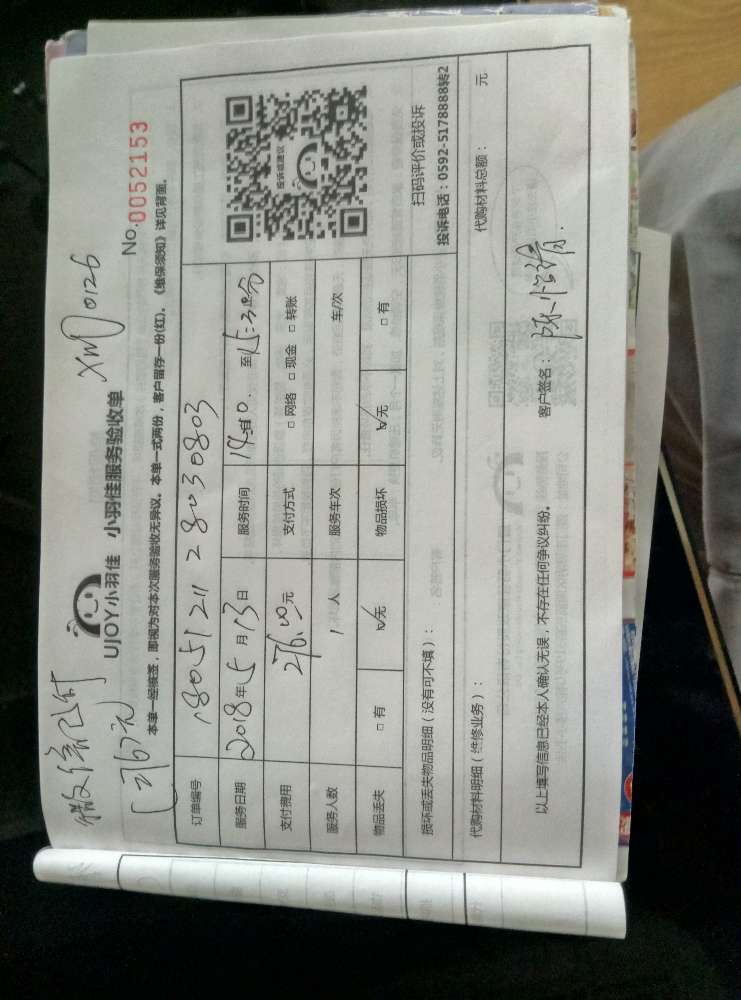 微信已付
XM0126
UJOY小羽佳 小羽佳服务验收单
No.0052153
本单一经接签，即视为对本次服务验收无异议。本单一式两份，客户留存一份(红)。《维保须知》详见背面。
订单编号 180512112803 0803
服务日期 2018年5月13日 服务时间 至15:30分
支付费用 276.00元 支付方式 □ 网络 □ 现金 □ 转账
服务人数 1 人 服务车次 车/次
物品丢失 □ 有 ☑无 物品损坏 ☑无 □ 有
投诉或建议
扫码评价或投诉
投诉电话：0592-5178888转2
损坏或丢失物品明细（没有可不填）：
代购材料明细（维修业务）： 代购材料总额： 元
以上填写信息已经本人确认无误，不存在任何争议纠纷。 客户签名：